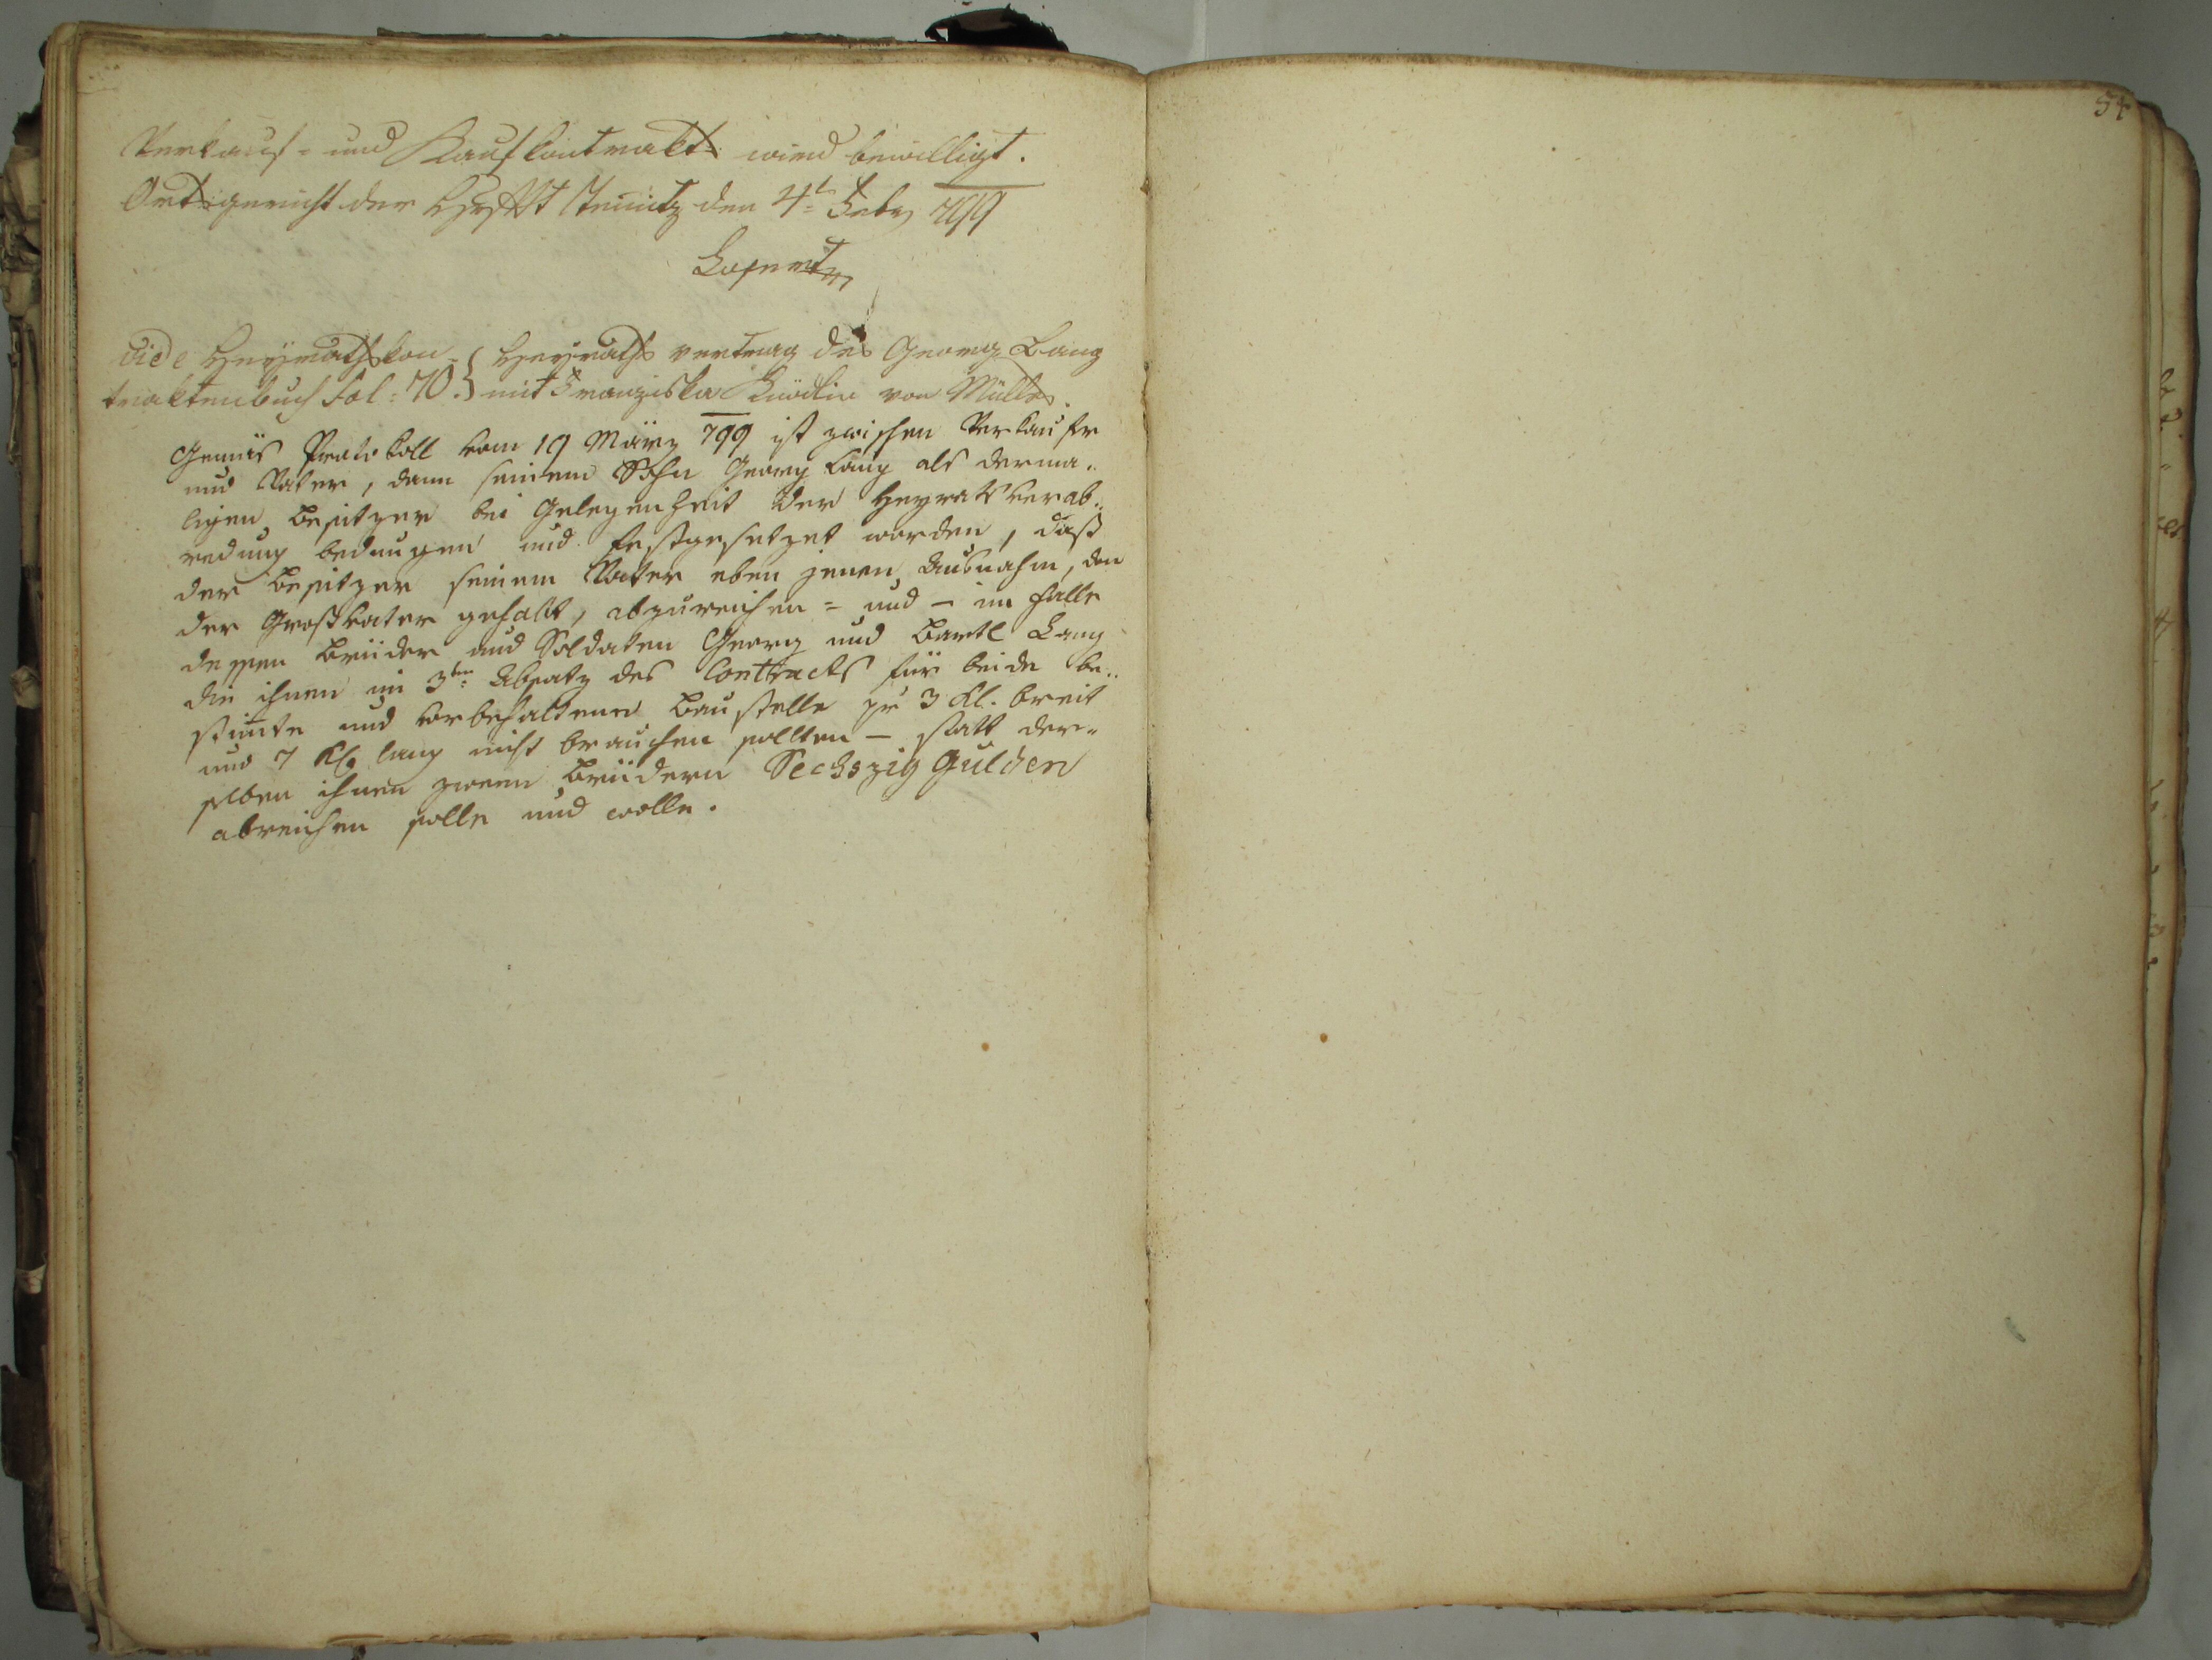 54
Verkauf- und Kaufkontrakt wird bewilligt.
Ortsgericht der Hrschft den 4t. Feby 799
vide Heyrathskon-
traktenbuch Fol: 70.
Heyraths vertrag des Georg Lang
mit Franziska von
Gemäs Protokoll vom 19 März 799 ist zwischen Verkaufr
und Vater, dann seinem Sohn Georg Lang als derma..
ligen Besitzer bei Gelegenheit der Heyratsverab..
redung bedungen und festgesetzet worden, daß
der Besitzer seinem Vater eben jenen Ausnahm, den
der Großvater gehabt, abzureichen = und – im Falle
dessen Brüder und Soldaten Georg und Bartl Lang
die ihnen im 3ten Absatz des Contracts für beide be..
stimte und vorbehaltene Baustelle zu 3 Kl. breit
und 7 Kl. lang nicht brauchen sollten – statt der-
selben ihnen zween Brüdern Sechszig Gulden
abreichen solle und wolle.